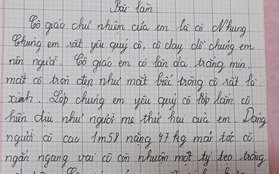 Bài làm
Cô giáo chủ nhiệm của em là cô Nhung.
Chúng em rất yêu quý cô, cô dạy dỗ chúng em
nên người. Cô giáo em có làn da trắng mịn,
mắt cô tròn đẹp như mắt búp trông cô rất là
xinh. Lớp chúng em yêu quý cô lắm cô
hiền dịu như người mẹ thứ hai của em. Dáng
người cô cao 1m58 nặng 47 kg mái tóc cô
ngắn ngang vai cô còn nhuộm một tý teo trông